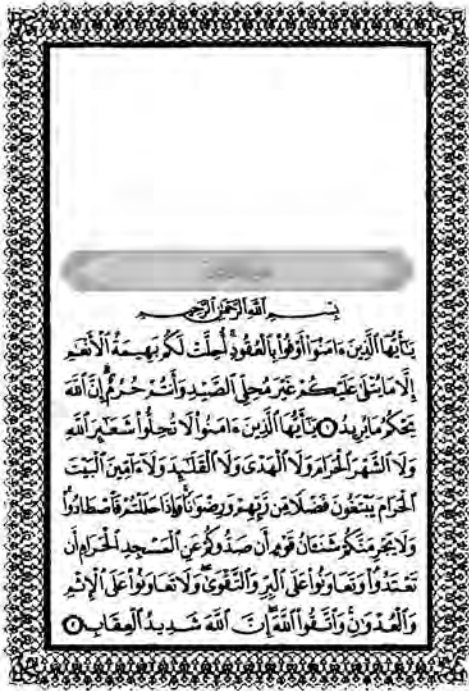 بِسْمِ ٱللَّهِ ٱلرَّحْمَٰنِ ٱلرَّحِيمِ
يَٰٓأَيُّهَا ٱلَّذِينَ ءَامَنُوٓا۟ أَوْفُوا۟ بِٱلْعُقُودِ ۚ أُحِلَّتْ لَكُم بَهِيمَةُ ٱلْأَنْعَٰمِ
إِلَّا مَا يُتْلَىٰ عَلَيْكُمْ غَيْرَ مُحِلِّى ٱلصَّيْدِ وَأَنتُمْ حُرُمٌ ۗ إِنَّ ٱللَّهَ
يَحْكُمُ مَا يُرِيدُ ١ يَٰٓأَيُّهَا ٱلَّذِينَ ءَامَنُوا۟ لَا تُحِلُّوا۟ شَعَٰٓئِرَ ٱللَّهِ
وَلَا ٱلشَّهْرَ ٱلْحَرَامَ وَلَا ٱلْهَدْىَ وَلَا ٱلْقَلَٰٓئِدَ وَلَآ ءَآمِّينَ ٱلْبَيْتَ
ٱلْحَرَامَ يَبْتَغُونَ فَضْلًا مِّن رَّبِّهِمْ وَرِضْوَٰنًا ۚ وَإِذَا حَلَلْتُمْ فَٱصْطَادُوا۟ ۚ
وَلَا يَجْرِمَنَّكُمْ شَنَـَٔانُ قَوْمٍ أَن صَدُّوكُمْ عَنِ ٱلْمَسْجِدِ ٱلْحَرَامِ أَن
تَعْتَدُوا۟ ۘ وَتَعَاوَنُوا۟ عَلَى ٱلْبِرِّ وَٱلتَّقْوَىٰ ۖ وَلَا تَعَاوَنُوا۟ عَلَى ٱلْإِثْمِ
وَٱلْعُدْوَٰنِ ۚ وَٱتَّقُوا۟ ٱللَّهَ ۖ إِنَّ ٱللَّهَ شَدِيدُ ٱلْعِقَابِ ٢